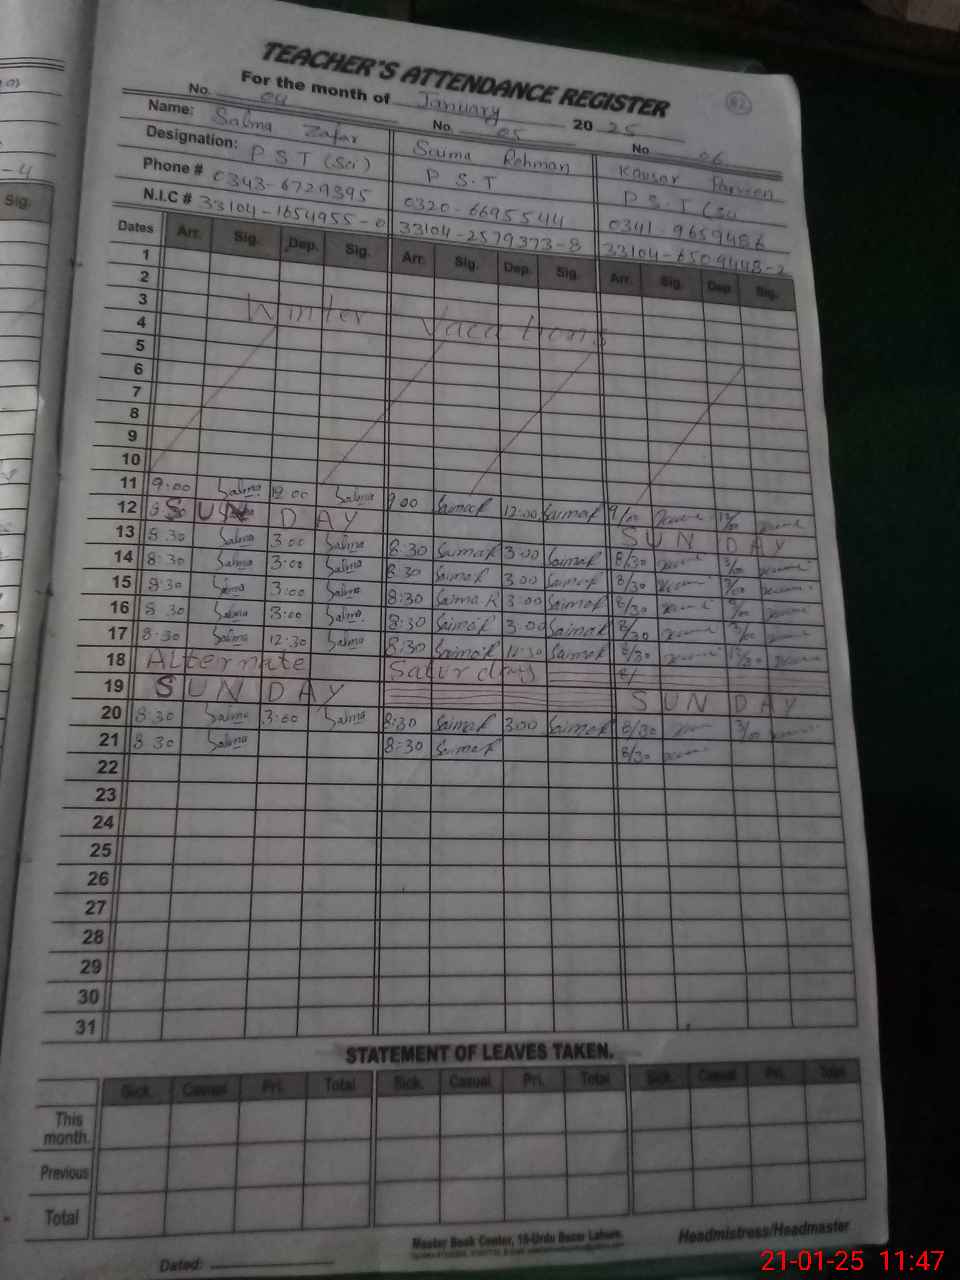 TEACHER'S ATTENDANCE REGISTER
For the month of January 2025
82
No. 04 No. 05 No. 06
Name: Salma Zafar Saima Rehman Kausar Parveen
Designation: P S T (Sci) P S.T P S.T (Sci
Phone # 0343-6729395 0320-6695544 0341-9659486
N.I.C # 33104-1654955-0 33104-2579373-8 33104-6509448-2
Dates Arr. Sig. Dep. Sig. Arr. Sig. Dep. Sig. Arr. Sig. Dep. Sig.
1
2
3 Winter Vacations
4
5
6
7
8
9
10
11 9:00 Salma 12 00 Salma 9 00 SaimaR 12:00 SaimaR 9/00 12/00
12 S U N D A Y S U N D A Y
13 8.30 Salma 3:00 Salma 8:30 SaimaR 3:00 SaimaR 8/30 3/00
14 8:30 Salma 3:00 Salma 8:30 SaimaR 3:00 SaimaR 8/30 3/00
15 8:30 Salma 3:00 Salma 8:30 Saima R 3:00 SaimaR 8/30 3/00
16 8 30 Salma 3:00 Salma 8:30 SaimaR 3:00 SaimaR 8/30 3/00
17 8:30 Salma 12:30 Salma 8:30 SaimaR SaimaR 8/30
18 Alternate Saturday 8/
19 S U N D A Y S U N D A Y
20 8:30 Salma 3:00 Salma 8:30 SaimaR 3:00 SaimaR 8/30 3/00
21 8 30 Salma 8:30 SaimaR 8/30
22
23
24
25
26
27
28
29
30
31
STATEMENT OF LEAVES TAKEN.
Sick. Casual Pri. Total Sick. Casual Pri. Total Sick. Casual Pri. Total
This month.
Previous
Total
Master Book Center, 18-Urdu Bazar Lahore.
Headmistress/Headmaster
Dated:
Sig.
-4
21-01-25 11:47